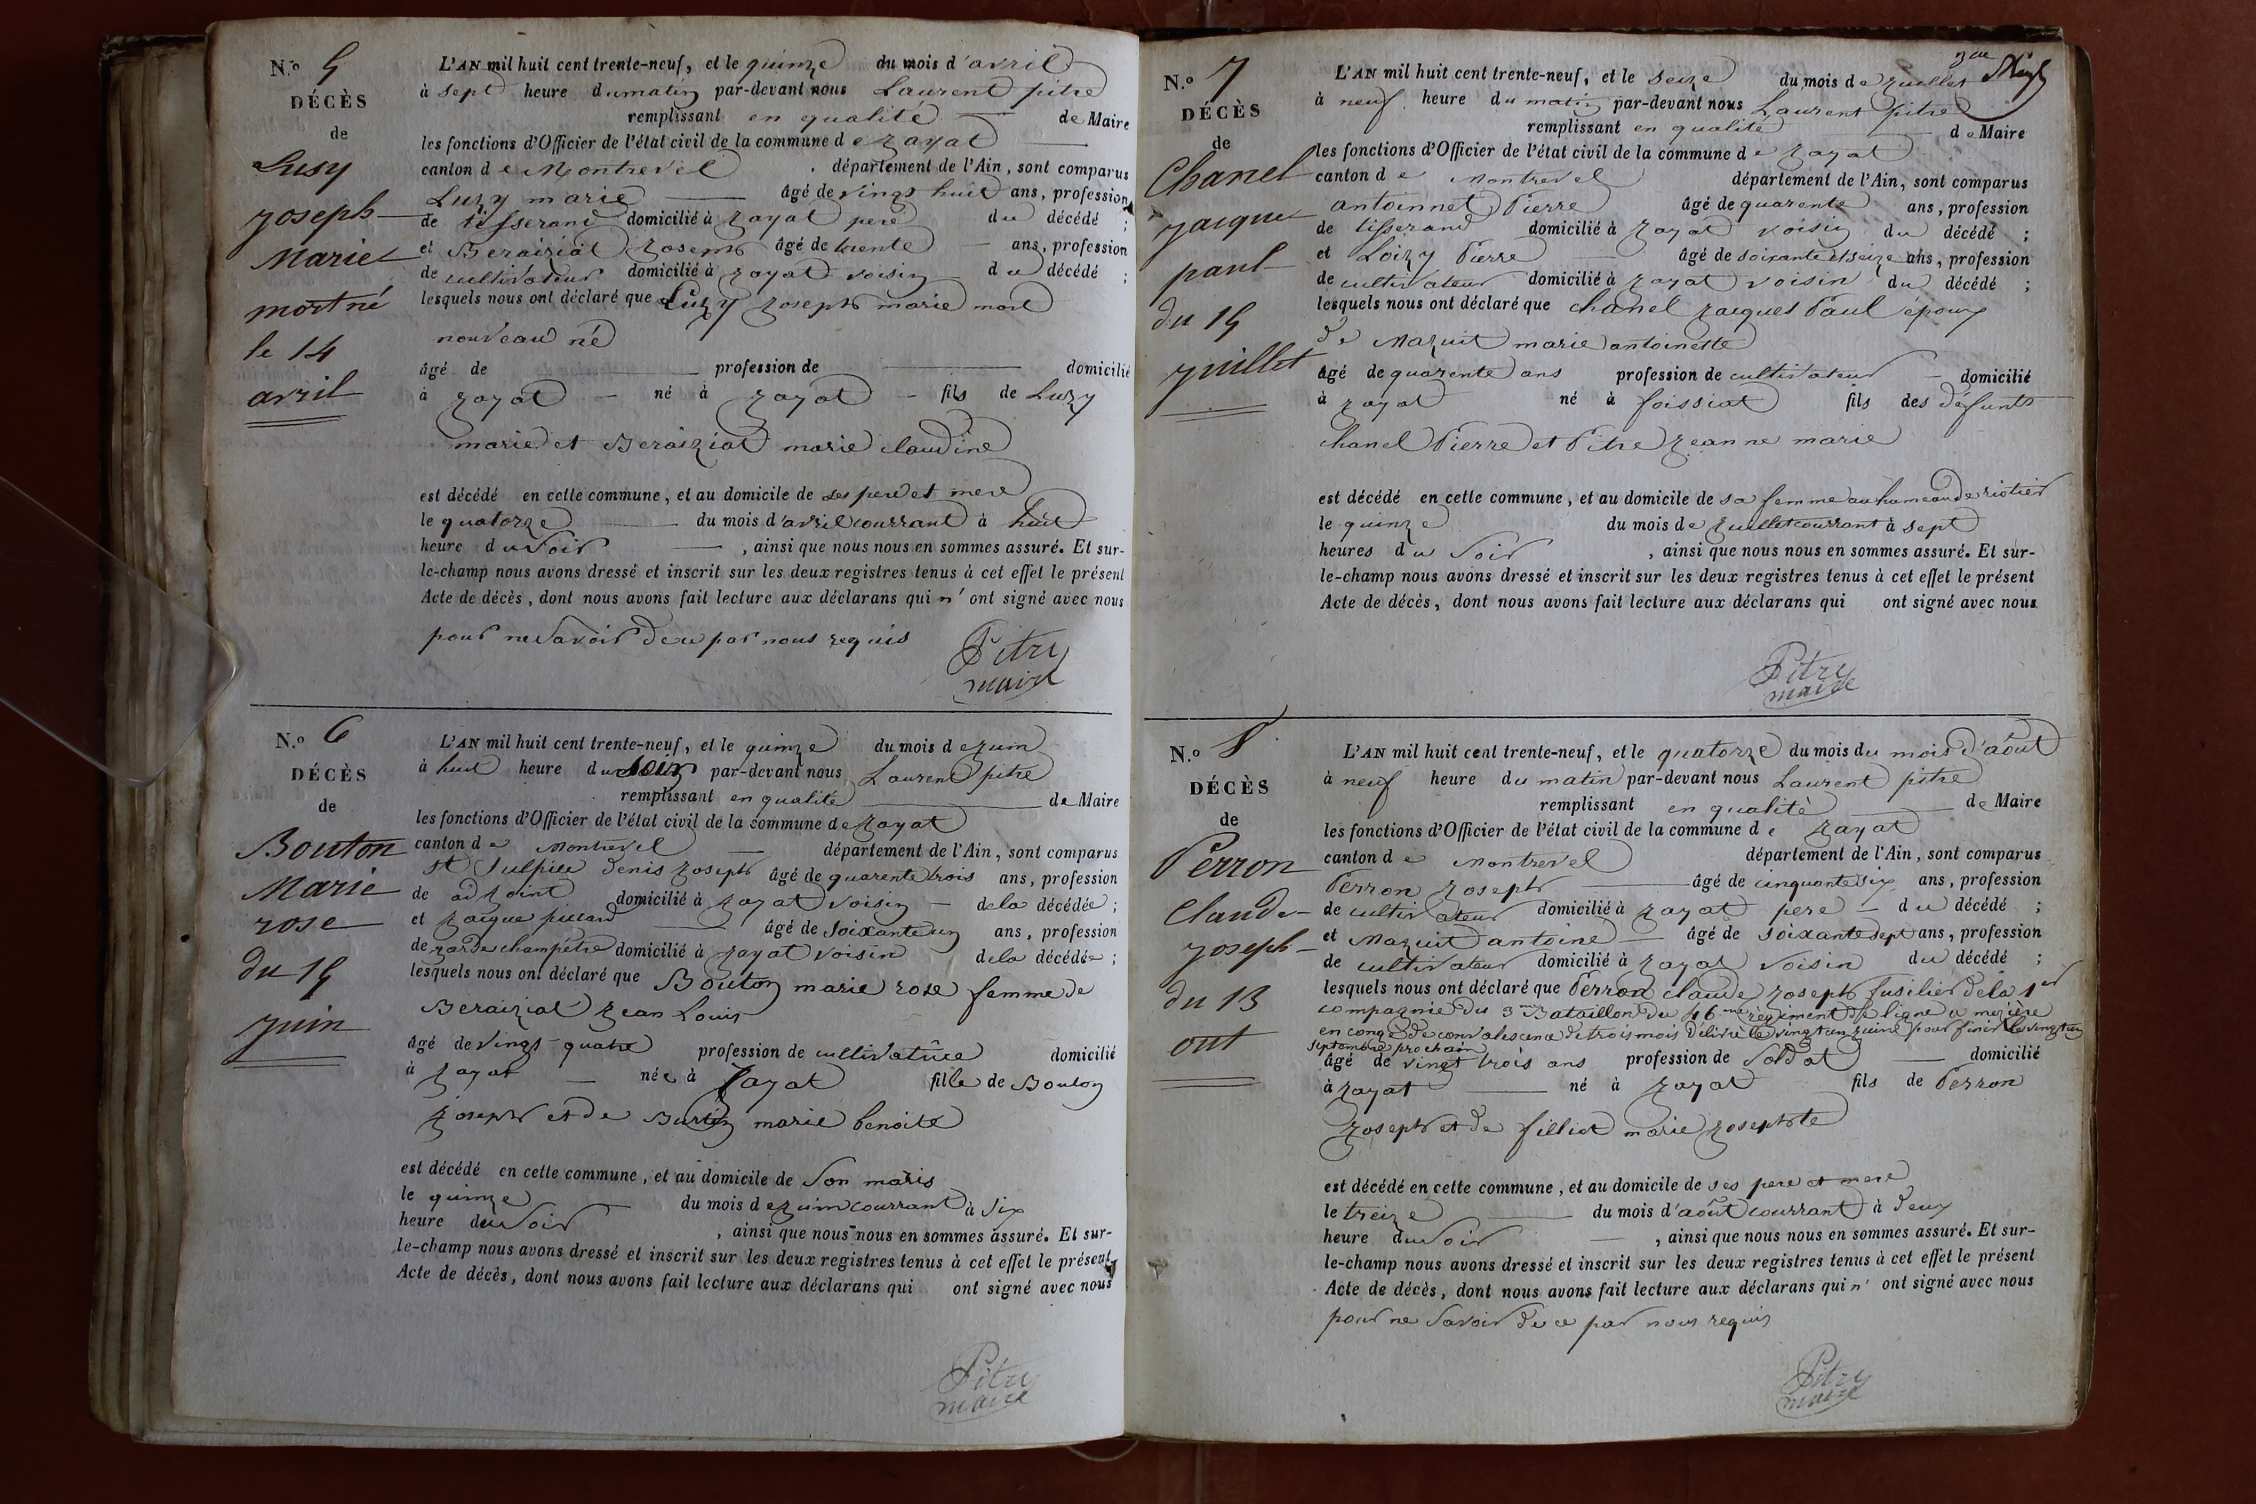 N.º 5
DÉCÈS
de
Lusy
joseph
Marie
mort né
le 14
avril
L'AN mil huit cent trente-neuf, et le quinze du mois d'avril
à sept heure du matin par-devant nous Laurent pitre
remplissant en qualité de Maire
les fonctions d'Officier de l'état civil de la commune de zayat
canton de Montrevel département de l'Ain, sont comparus
Luzy marie âgé de vingt huit ans, profession
de tisserand domicilié à zayat pere du décédé ;
et Beraiziat zoseph âgé de trente ans, profession
de cultivateur domicilié à zayat voisin du décédé ;
lesquels nous ont déclaré que Luzy zoseph marie mort
nouveau né
âgé de profession de domicilié
à zayat né à zayat fils de Luzy
marie et Beraiziat marie claudine
est décédé en cette commune, et au domicile de ses pere et mere
le quatorze du mois d'avril courrant à huit
heure du soir , ainsi que nous nous en sommes assuré. Et sur-
le-champ nous avons dressé et inscrit sur les deux registres tenus à cet effet le présent
Acte de décès, dont nous avons fait lecture aux déclarans qui n'ont signé avec nous
pour ne savoir de ce par nous requis
Pitre
maire
N.º 6
DÉCÈS
de
Bouton
Marie
rose
du 15
juin
L'AN mil huit cent trente-neuf, et le quinze du mois de zuin
à huit heure du soir par-devant nous Laurent pitre
remplissant en qualité de Maire
les fonctions d'Officier de l'état civil de la commune de zayat
canton de Montrevel département de l'Ain, sont comparus
st Sulpice denis zoseph âgé de quarente trois ans, profession
de adzoint domicilié à zayat voisin de la décédée ;
et zaique âgé de soixante un ans, profession
de zarde champêtre domicilié à zayat voisin de la décédée ;
lesquels nous ont déclaré que Bouton marie rose femme de
Beraiziat zean Louis
âgé de vingt quatre profession de cultivatrice domicilié
à zayat née à zayat fille de Bouton
zoseph et de marie benoite
est décédé en cette commune, et au domicile de son maris
le quinze du mois de zuin courrant à six
heure du soir , ainsi que nous nous en sommes assuré. Et sur-
le-champ nous avons dressé et inscrit sur les deux registres tenus à cet effet le présent
Acte de décès, dont nous avons fait lecture aux déclarans qui ont signé avec nous
Pitre
maire
N.º 7
DÉCÈS
de
Chanel
jacque
paul
du 15
juillet
L'AN mil huit cent trente-neuf, et le seize du mois de zuillet
à neuf heure du matin par-devant nous Laurent pitre
remplissant en qualité de Maire
les fonctions d'Officier de l'état civil de la commune de zayat
canton de Montrevel département de l'Ain, sont comparus
antoinnet Pierre âgé de quarente ans, profession
de tisserand domicilié à zayat voisin du décédé ;
et Loizy Pierre âgé de soixante et seize ans, profession
de cultivateur domicilié à zayat voisin du décédé ;
lesquels nous ont déclaré que chanel zacques Paul époux
de Mazuit marie antoinette
âgé de quarente ans profession de cultivateur domicilié
à zayat né à foissiat fils des défunts
chanel Pierre et Pitre zeanne marie
est décédé en cette commune, et au domicile de sa femme au hameau de riotier
le quinze du mois de zuillet courrant à sept
heures du soir , ainsi que nous nous en sommes assuré. Et sur-
le-champ nous avons dressé et inscrit sur les deux registres tenus à cet effet le présent
Acte de décès, dont nous avons fait lecture aux déclarans qui ont signé avec nous
Pitre
maire
N.º 8
DÉCÈS
de
Perron
Claude
joseph
du 13
out
L'AN mil huit cent trente-neuf, et le quatorze du mois du mois d'aôut
à neuf heure du matin par-devant nous Laurent pitre
remplissant en qualité de Maire
les fonctions d'Officier de l'état civil de la commune de zayat
canton de Montrevel département de l'Ain, sont comparus
Perron zoseph âgé de cinquante six ans, profession
de cultivateur domicilié à zayat pere du décédé ;
et Mazuit antoine âgé de soixante sept ans, profession
de cultivateur domicilié à zayat voisin du décédé ;
lesquels nous ont déclaré que Perron claude zoseph fusilier de la 1er
compagnie du 3me Bataillon du 46me regiment de ligne a mezière
en congé de convalescence de trois mois délivré le vingt un pour finir le vingt un
septembre prochain
âgé de vingt trois ans profession de soldat domicilié
à zayat né à zayat fils de Perron
zoseph et de filliat marie zosephte
est décédé en cette commune, et au domicile de ses pere et mere
le treize du mois d'aôut courrant à deux
heure du soir , ainsi que nous nous en sommes assuré. Et sur-
le-champ nous avons dressé et inscrit sur les deux registres tenus à cet effet le présent
Acte de décès, dont nous avons fait lecture aux déclarans qui n'ont signé avec nous
pour ne savoir de ce par nous requis
Pitre
maire